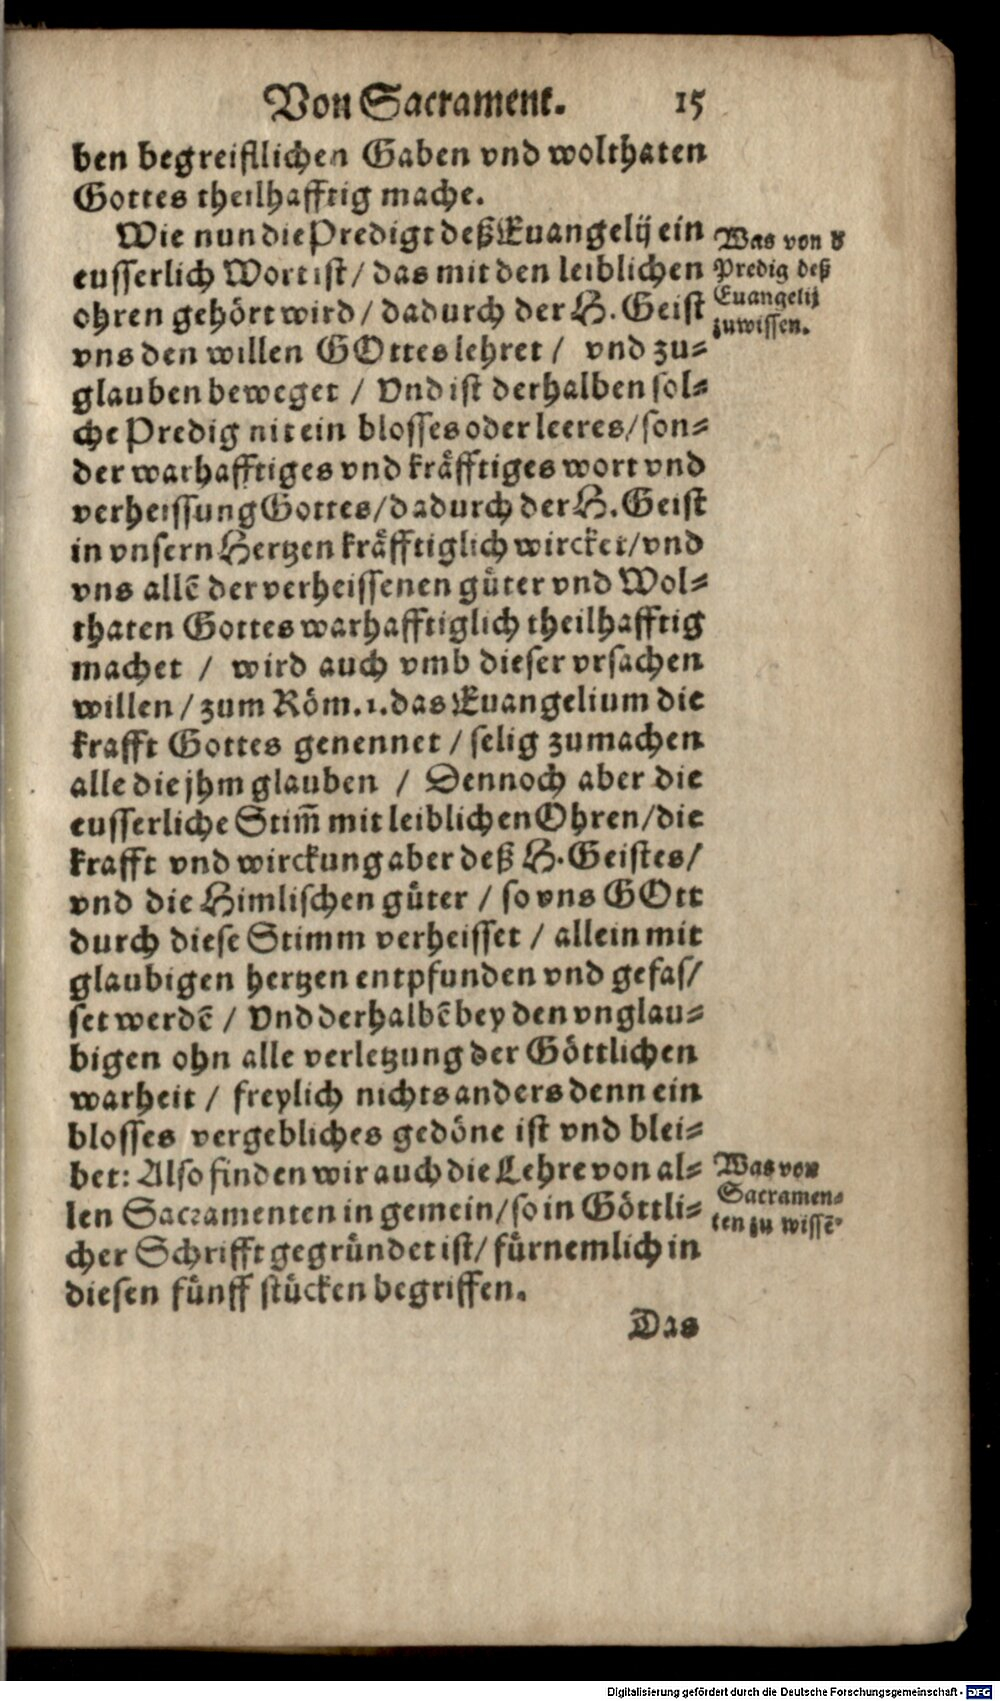 Von Sacrament. 15
ben begreiflichen Gaben vnd wolthaten
Gottes theilhafftig mache.
Wie nun die Predigt deß Euangelij ein
eusserlich Wort ist / das mit den leiblichen
ohren gehört wird / dadurch der H. Geist
vns den willen GOttes lehret / vnd zu⸗
glauben beweget / Vnd ist derhalben sol⸗
che Predig nit ein blosses oder leeres / son⸗
der warhafftiges vnd kräfftiges wort vnd
verheissung Gottes / dadurch der H. Geist
in vnsern Hertzen kräfftiglich wircket / vnd
vns allẽ der verheissenen güter vnd Wol⸗
thaten Gottes warhafftiglich theilhafftig
machet / wird auch vmb dieser vrsachen
willen / zum Röm. 1. das Euangelium die
krafft Gottes genennet / selig zumachen
alle die jhm glauben / Dennoch aber die
eusserliche Stim̃ mit leiblichen Ohren / die
krafft vnd wirckung aber deß H. Geistes /
vnd die Himlischen güter / so vns GOtt
durch diese Stimm verheisset / allein mit
glaubigen hertzen entpfunden vnd gefas/
set werdẽ / Vnd derhalbẽ bey den vnglau⸗
bigen ohn alle verletzung der Göttlichen
warheit / freylich nichts anders denn ein
blosses vergebliches gedöne ist vnd blei⸗
bet: Also finden wir auch die Lehre von al⸗
len Sacramenten in gemein / so in Göttli⸗
cher Schrifft gegründet ist / fürnemlich in
diesen fünff stücken begriffen.
Das
Was von d
Predig deß
Euangelij
zuwissen.
Was von
Sacramen⸗
ten zu wissẽ.
Digitalisierung gefördert durch die Deutsche Forschungsgemeinschaft - DFG